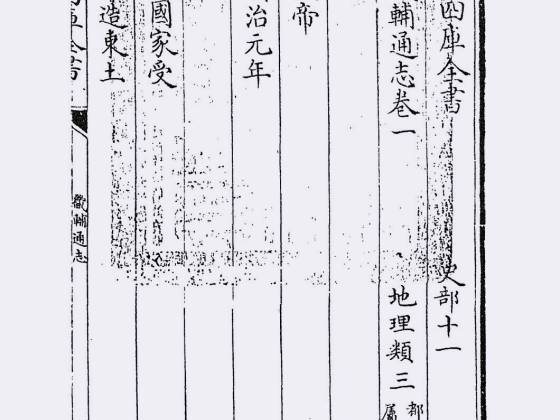 四庫全書 史部十一
輔通志卷一 地理類三 都
帝
治元年
國家受
造東土
庫全書
畿輔通志